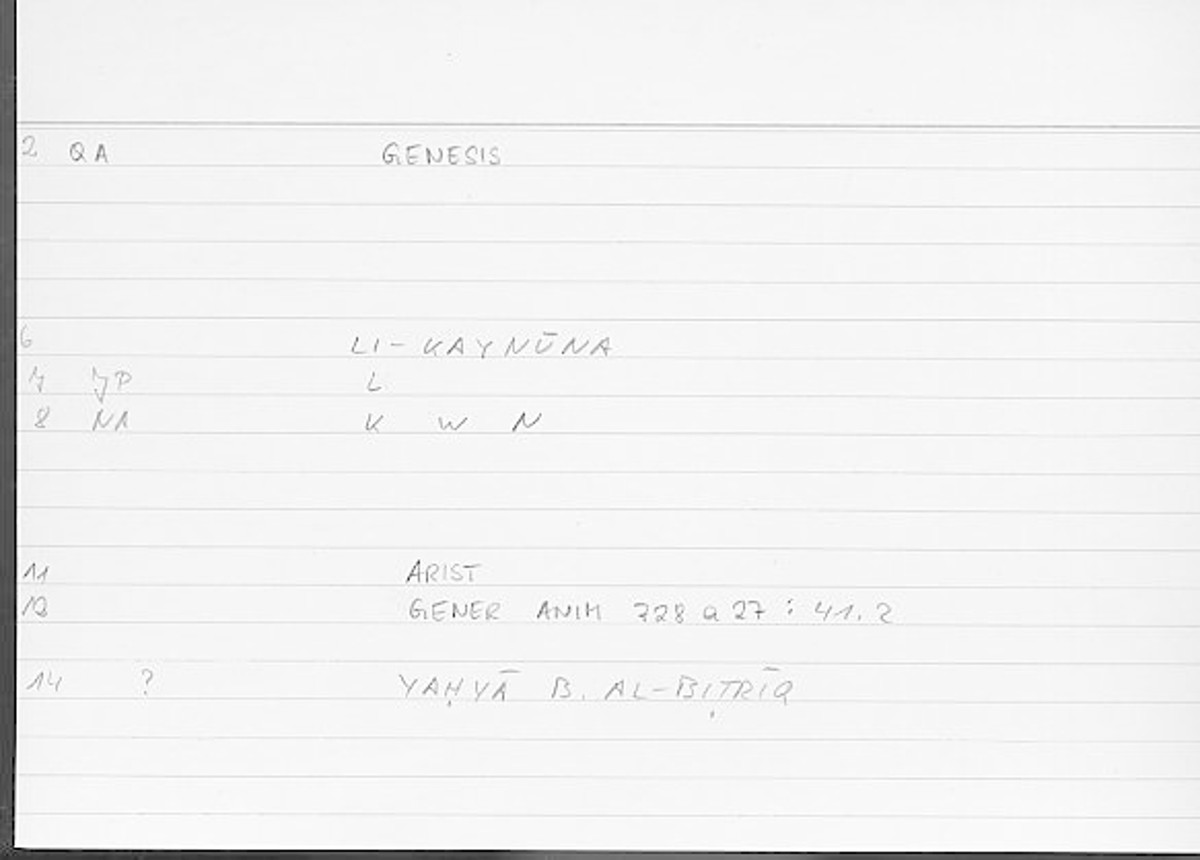 2 QA GENESIS
6 LI- KAYNŪNA
7 JP L
8 NA K W N
11 ARIST
12 GENER ANIM 728 a 27 : 41.2
14 ? YAḤYĀ B. AL-BIṬRĪQ